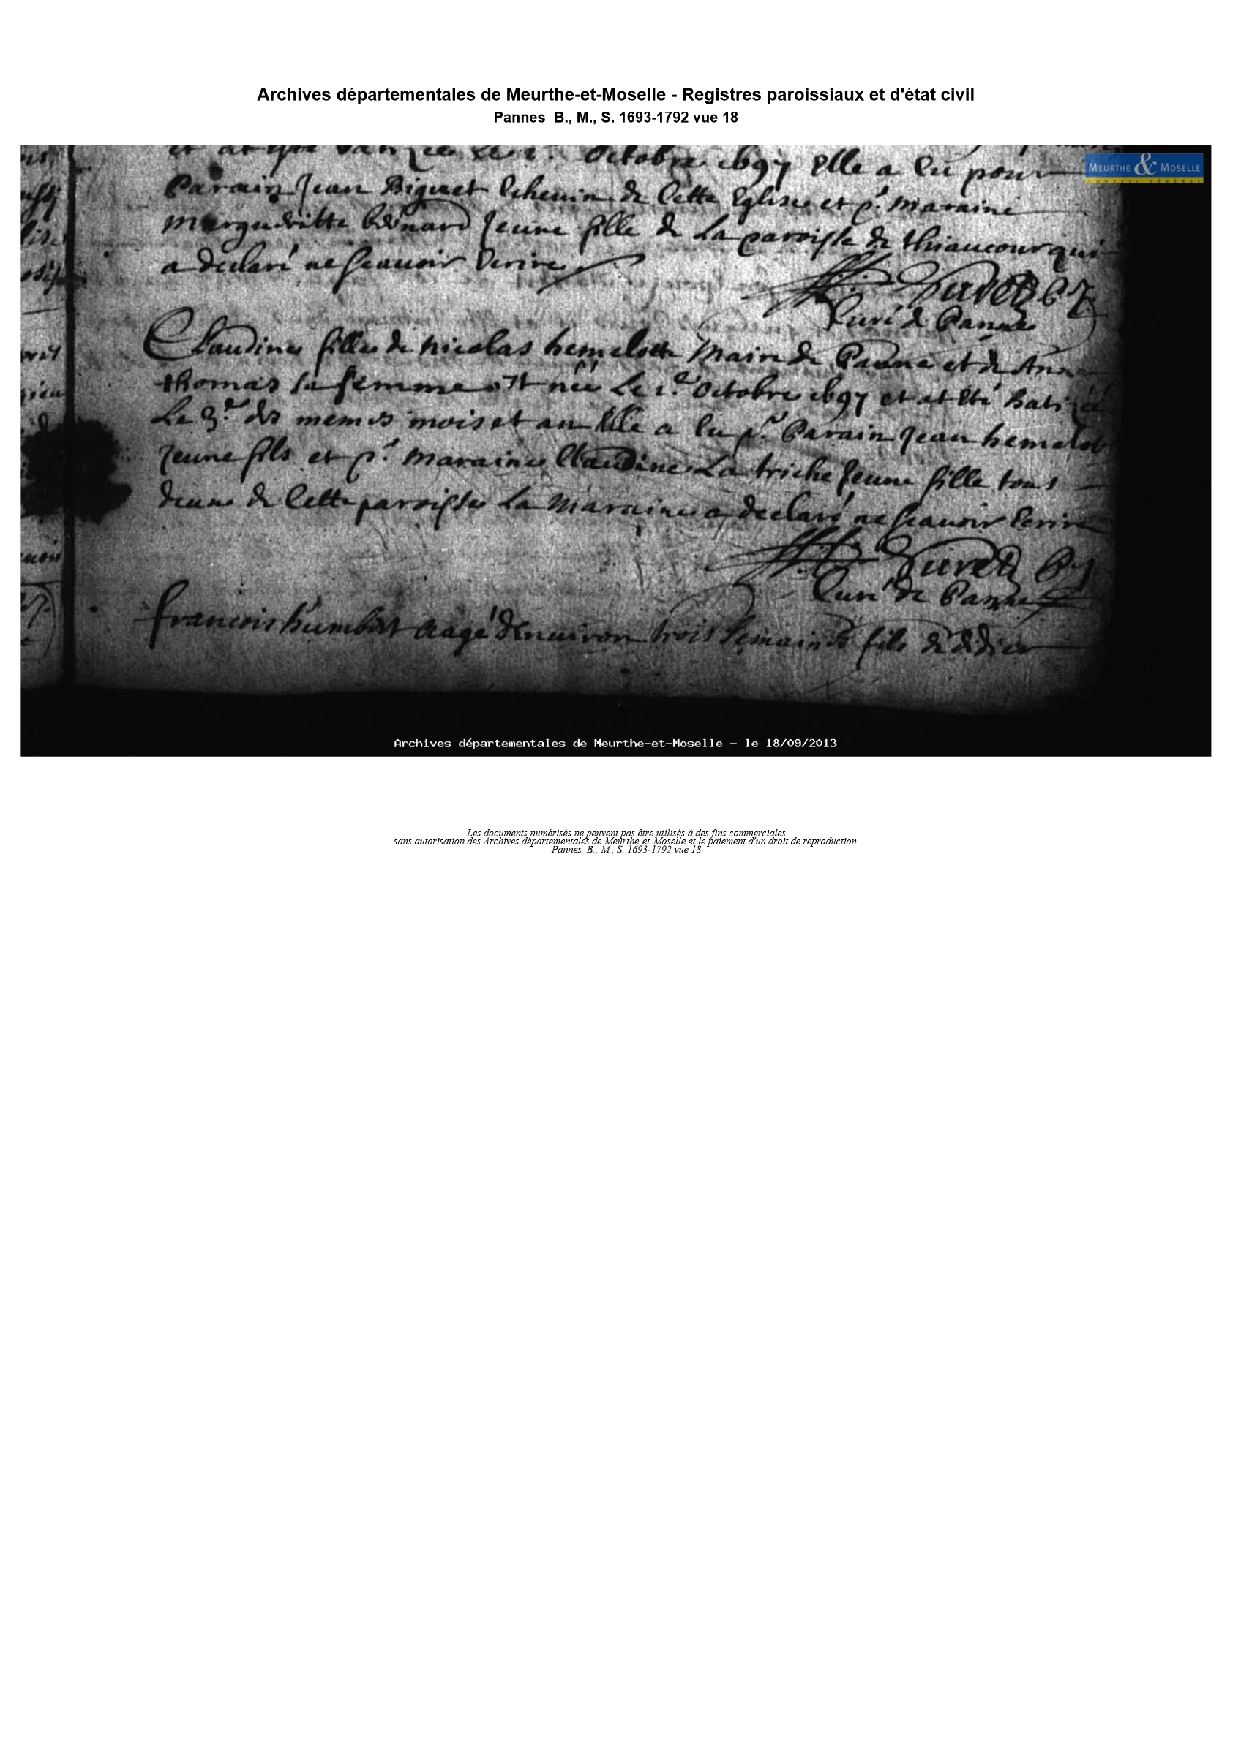 Archives départementales de Meurthe-et-Moselle - Registres paroissiaux et d'état civil
Pannes B., M., S. 1693-1792 vue 18
MEURTHE & MOSELLE
octobre 1697 elle a eu pour
Parain Jean Biguet Echevin de cette Eglise et p.r maraine
jeune fille de la paroisse de thiaucour qui
a declaré ne scauoir Ecrire
Curé de Panne
Claudine fille de nicolas hemelot Main de Panne et de Anne
thomas sa femme est née Le 1.er octobre 1697 et at été Bati
Le 3.e des memes mois et an Elle a Eu p.r Parain Jean hemelot
Jeune fils et p.r maraine Claudine La triche Jeune fille tous
deux de Cette paroisse la Maraine a declaré ne scauoir Ecrire
Curé de Panne
francois humbert aagé d'enuiron trois semaines fils de didier
Archives départementales de Meurthe-et-Moselle - le 18/09/2013
Les documents numérisés ne peuvent pas être utilisés à des fins commerciales
sans autorisation des Archives départementales de Meurthe et Moselle et le paiement d'un droit de reproduction
Pannes B., M., S. 1693-1792 vue 18